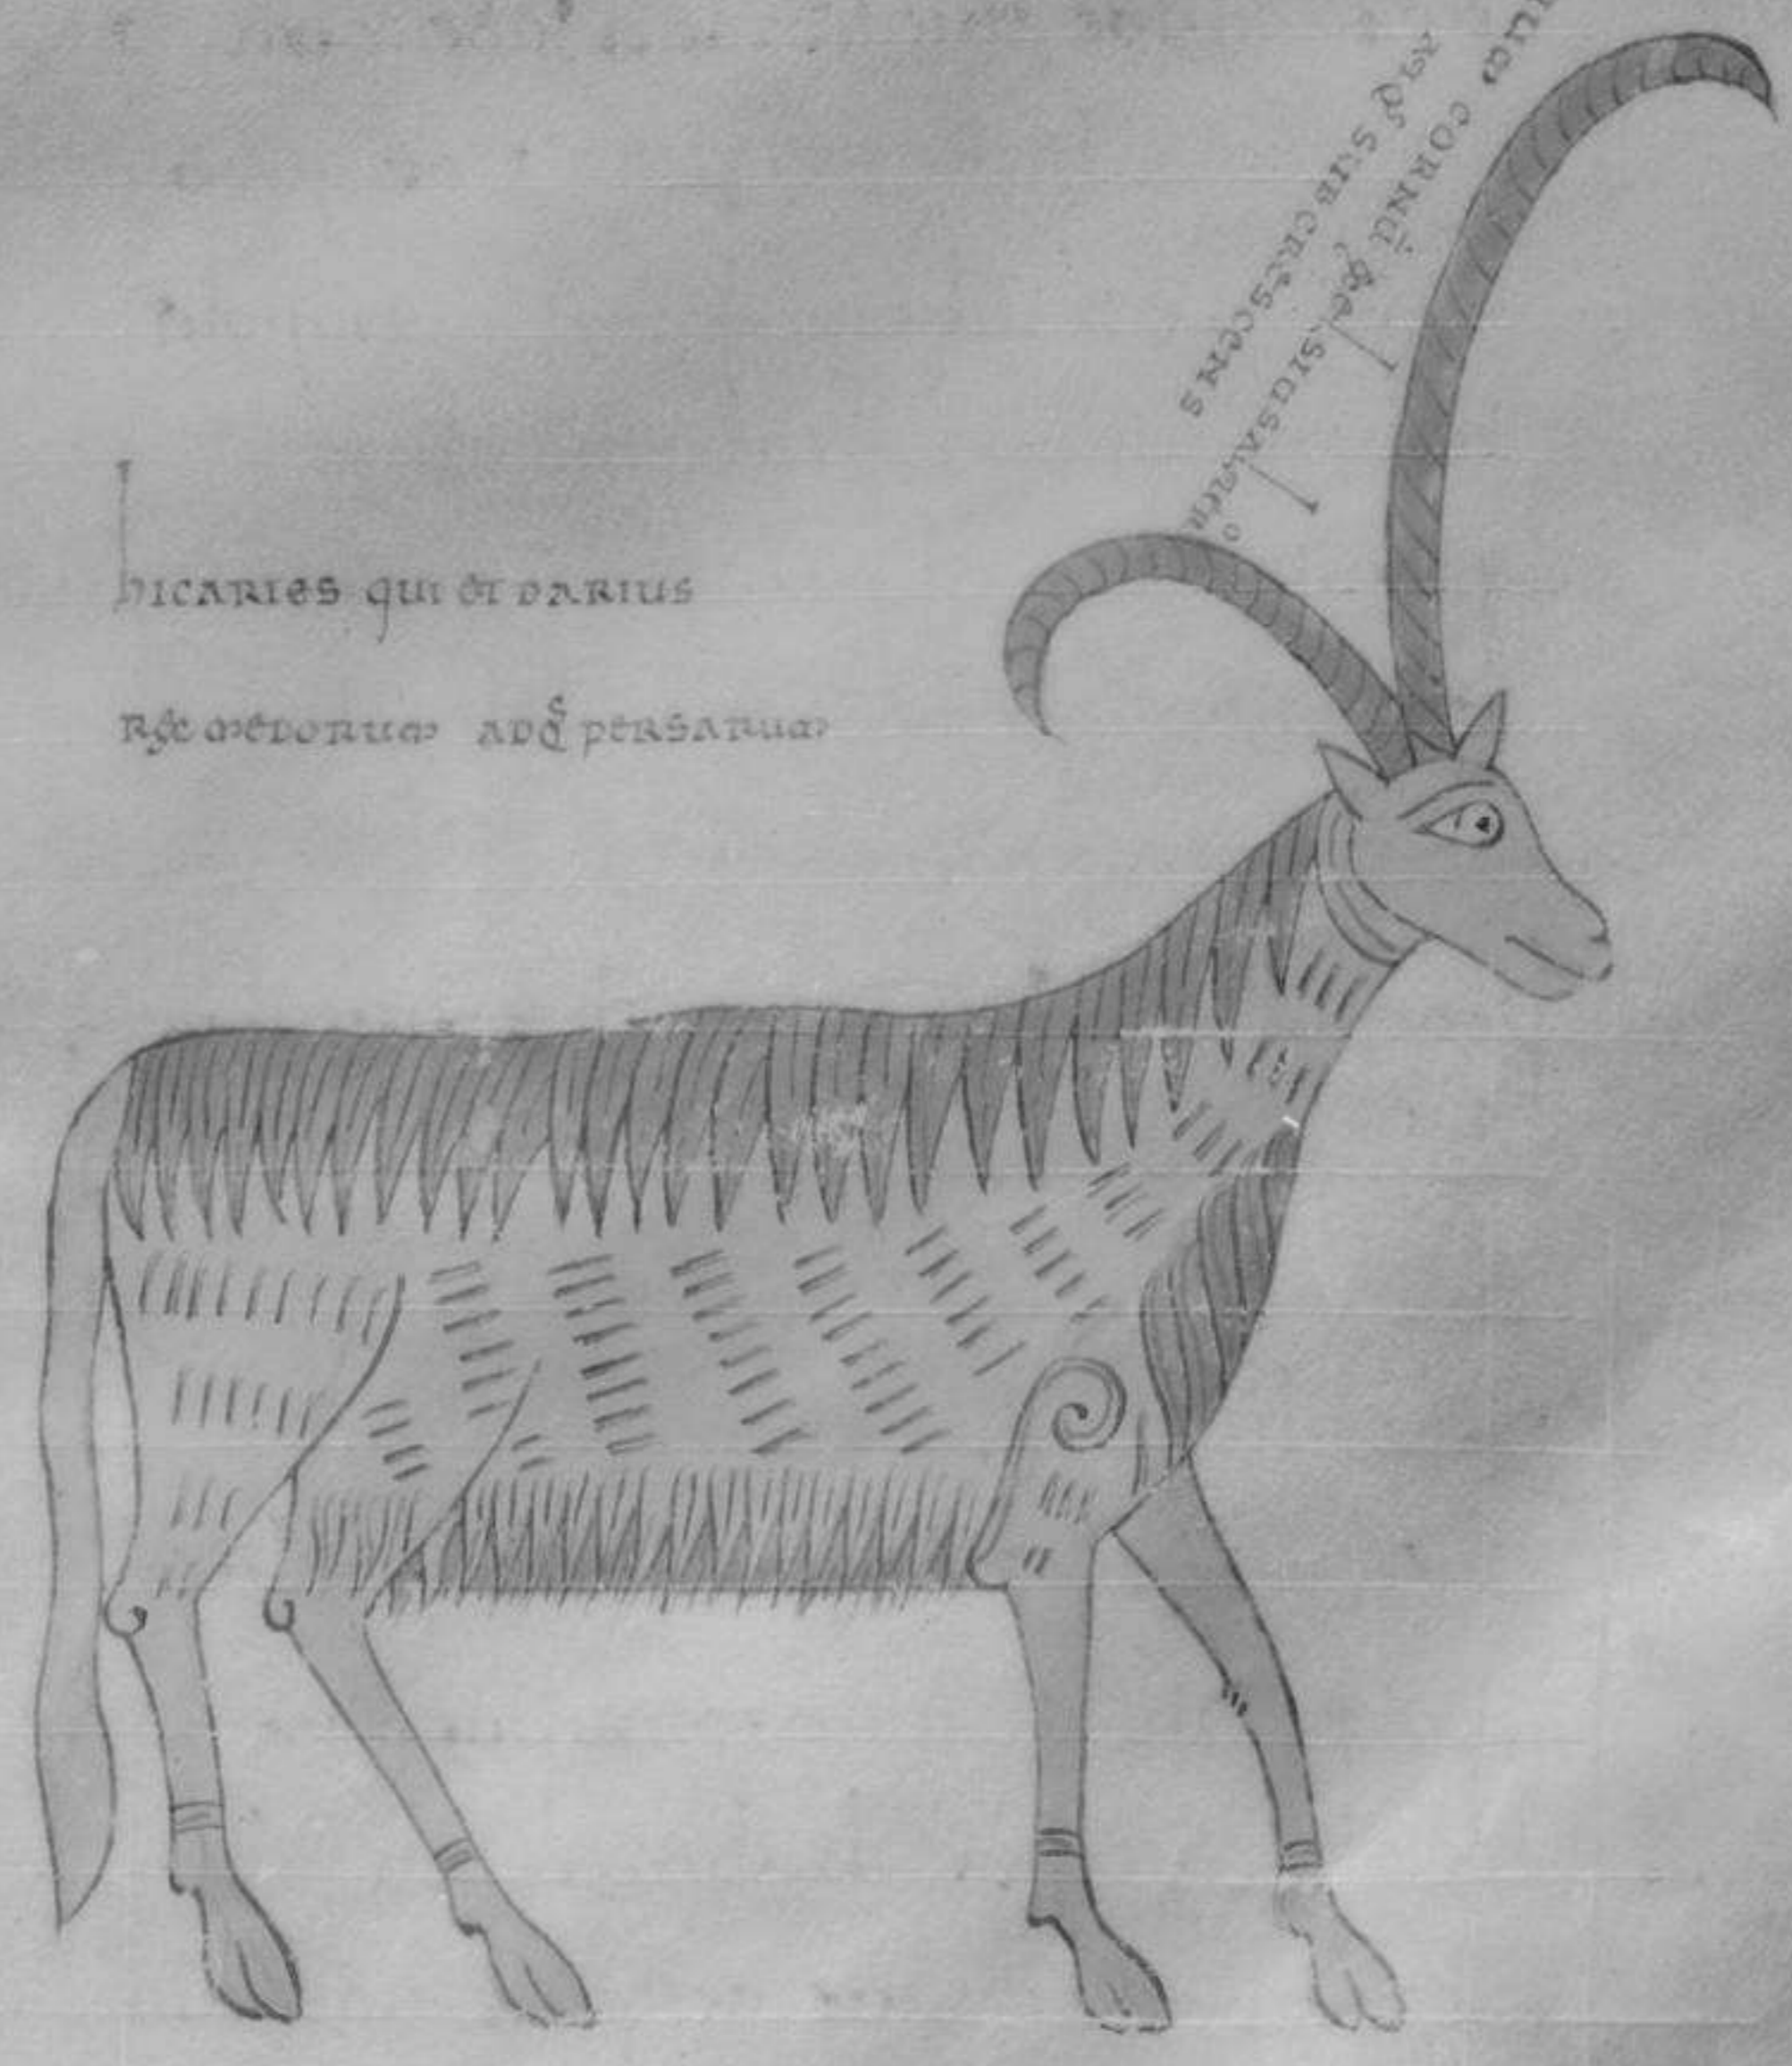 hicaries qui et darius
rex medorum adqꝫ persarum
cornuū excelsius altero
atqꝫ subcrescens